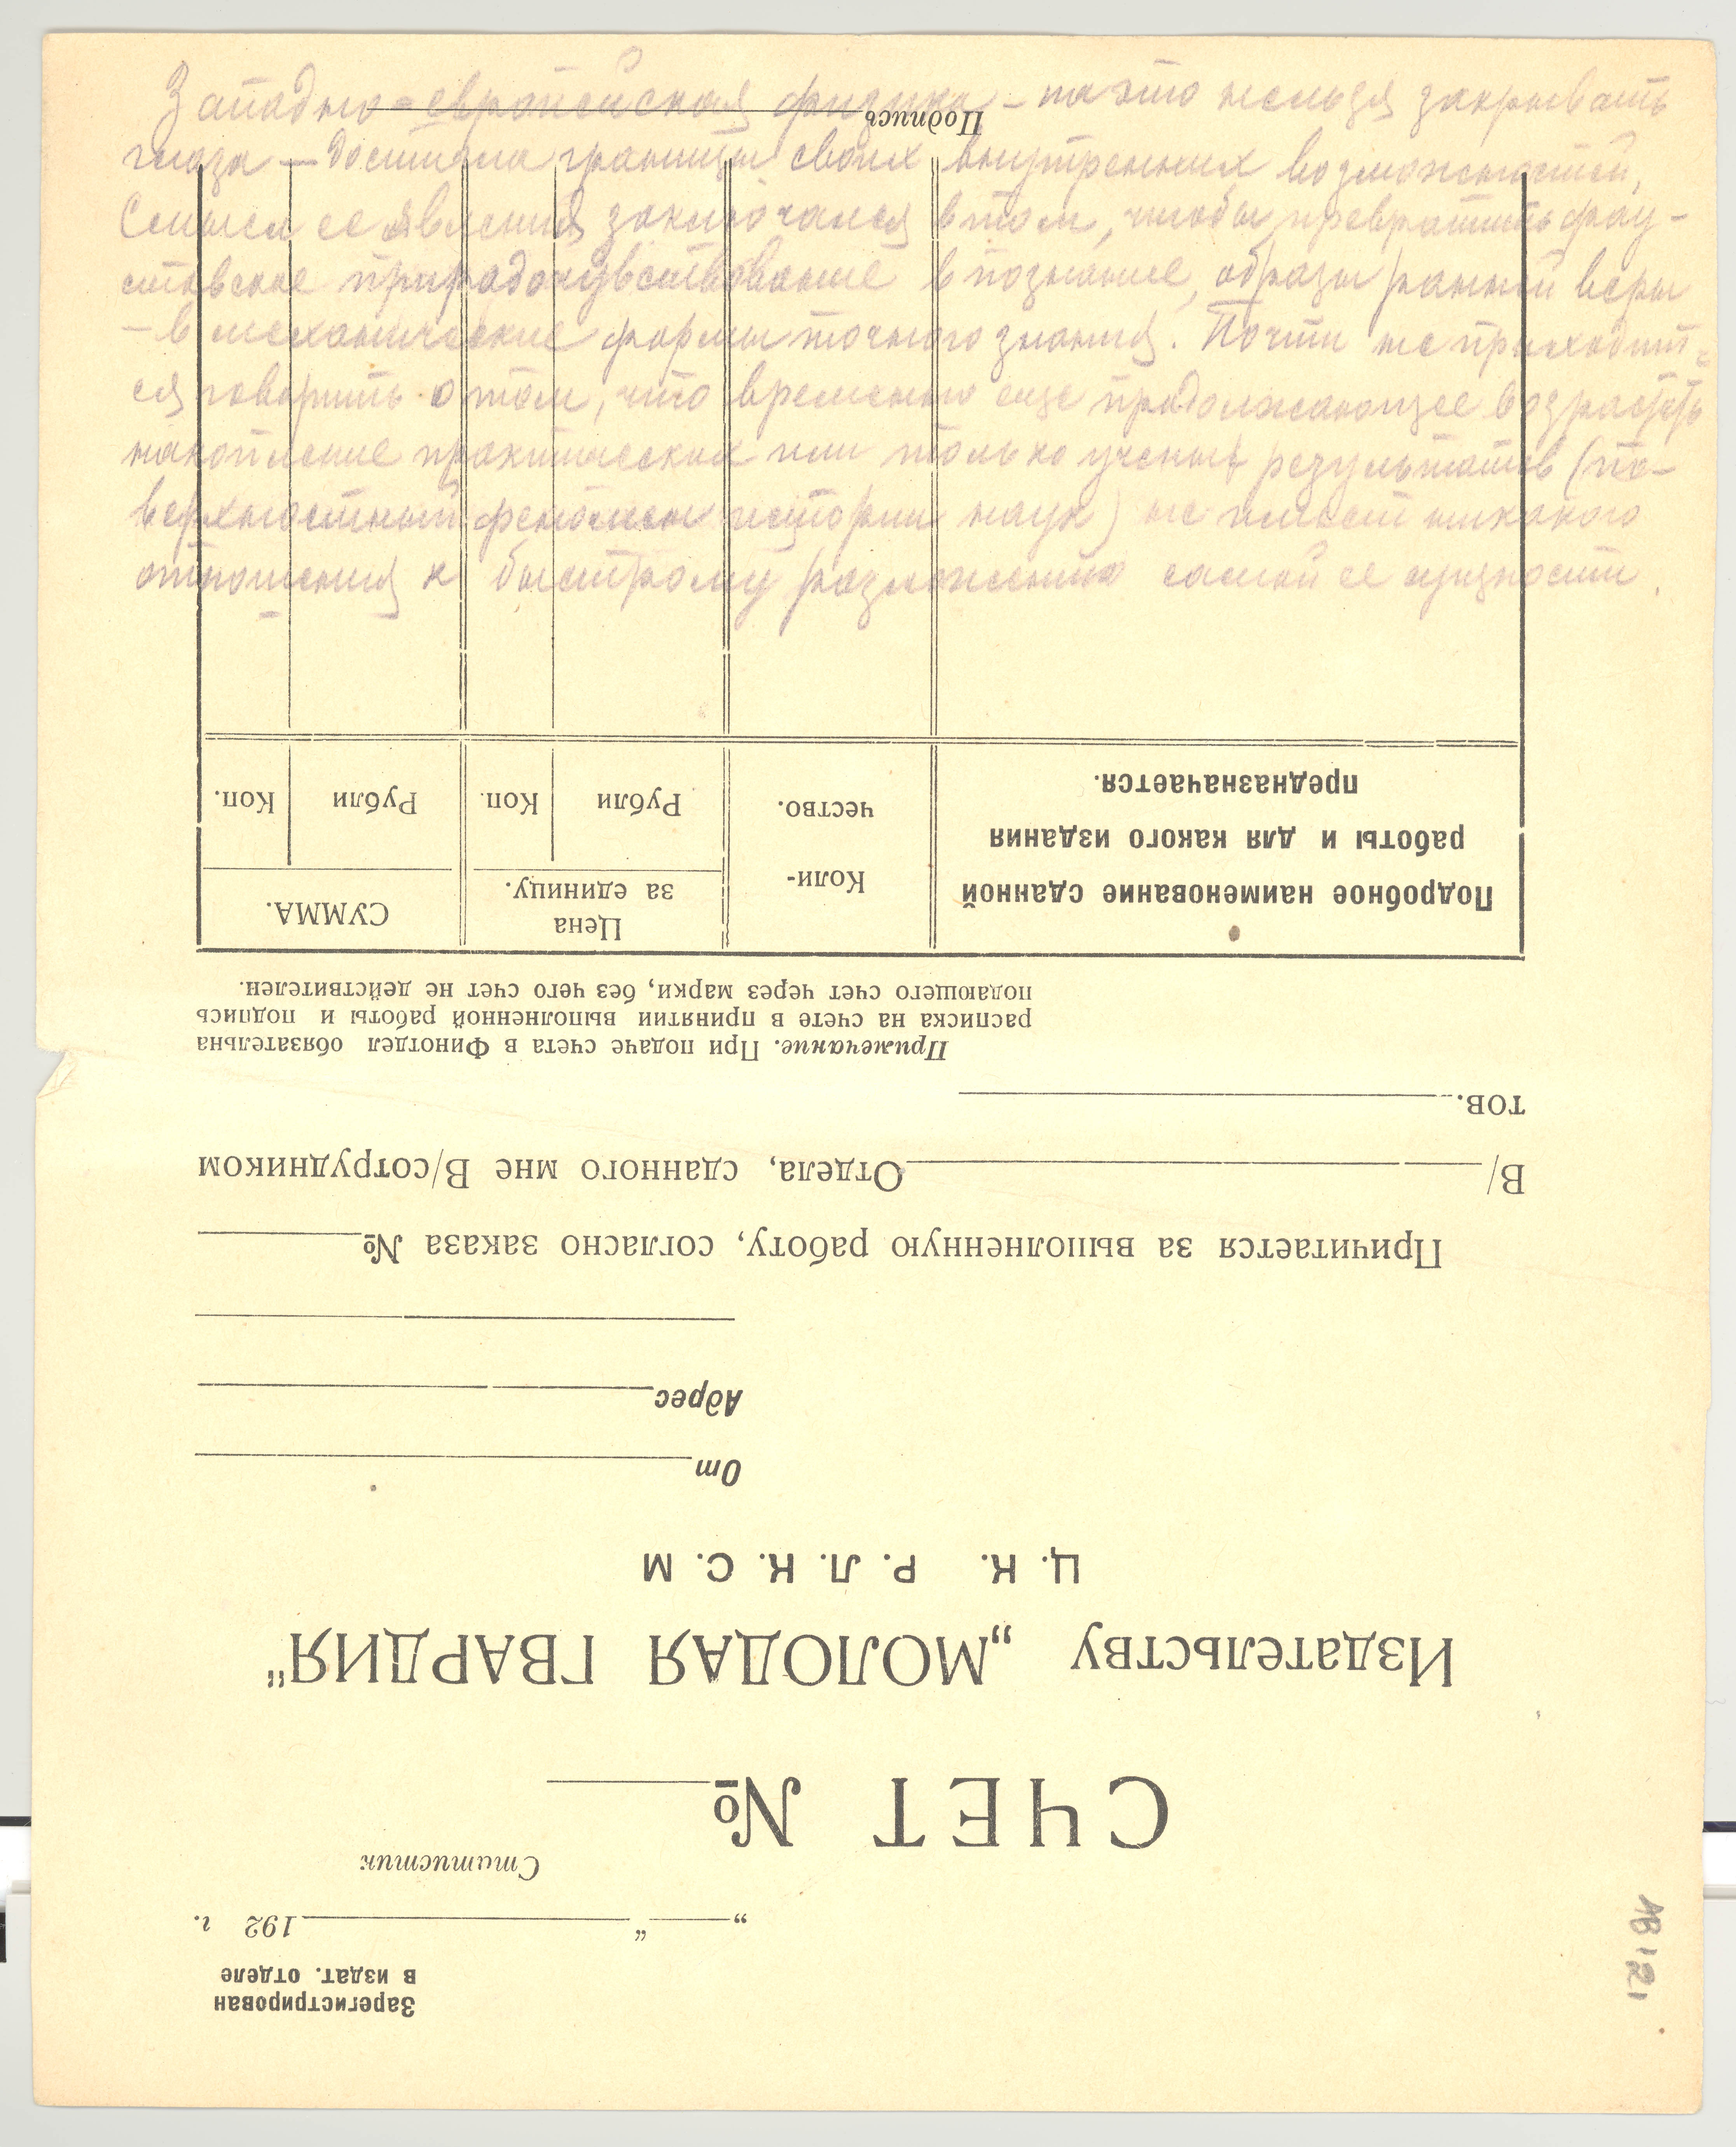 Западно-европейская физика – на это нельзя закрывать
глаза – достигла границы своих внутренних возможностей.
Смысл ее явления заключался в том, чтобы превратить фау-
стовское природочувствование в познание, образы ранней веры
– в механические формы точного знания. Почти не приходит-
ся говорить о том, что временно еще продолжающее возрастать
накопление практических или только ученых результатов (по-
верхностный феномен истории наук) не имеет никакого
отношения к быстрому разложению самой ее сущности.
Зарегистрирован
в издат. отделе
„ “ 192 г.
Статистик
СЧЕТ №
Издательству „МОЛОДАЯ ГВАРДИЯ“
Ц. К. Р. Л. К. С. М
От
Адрес
Причитается за выполненную работу, согласно заказа №
В/ Отдела, сданного мне В/сотрудником
тов.
Примечание. При подаче счета в Финотдел обязательна
расписка на счете в принятии выполненной работы и подпись
подающего счет через марки, без чего счет не действителен.
Подробное наименование сданной
работы и для какого издания
предназначается.
Коли-
чество.
Цена
за единицу.
Рубли
Коп.
СУММА.
Рубли
Коп.
Подпись
АВ 121